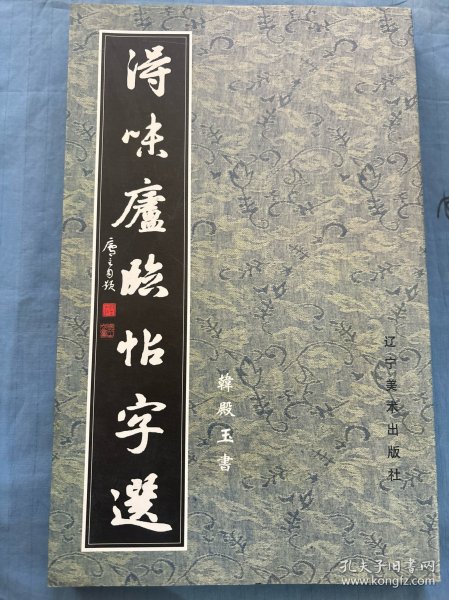 得味廬臨帖字選
廬主自題
韓殿玉書
辽宁美术出版社
孔夫子旧书网
www.kongfz.com